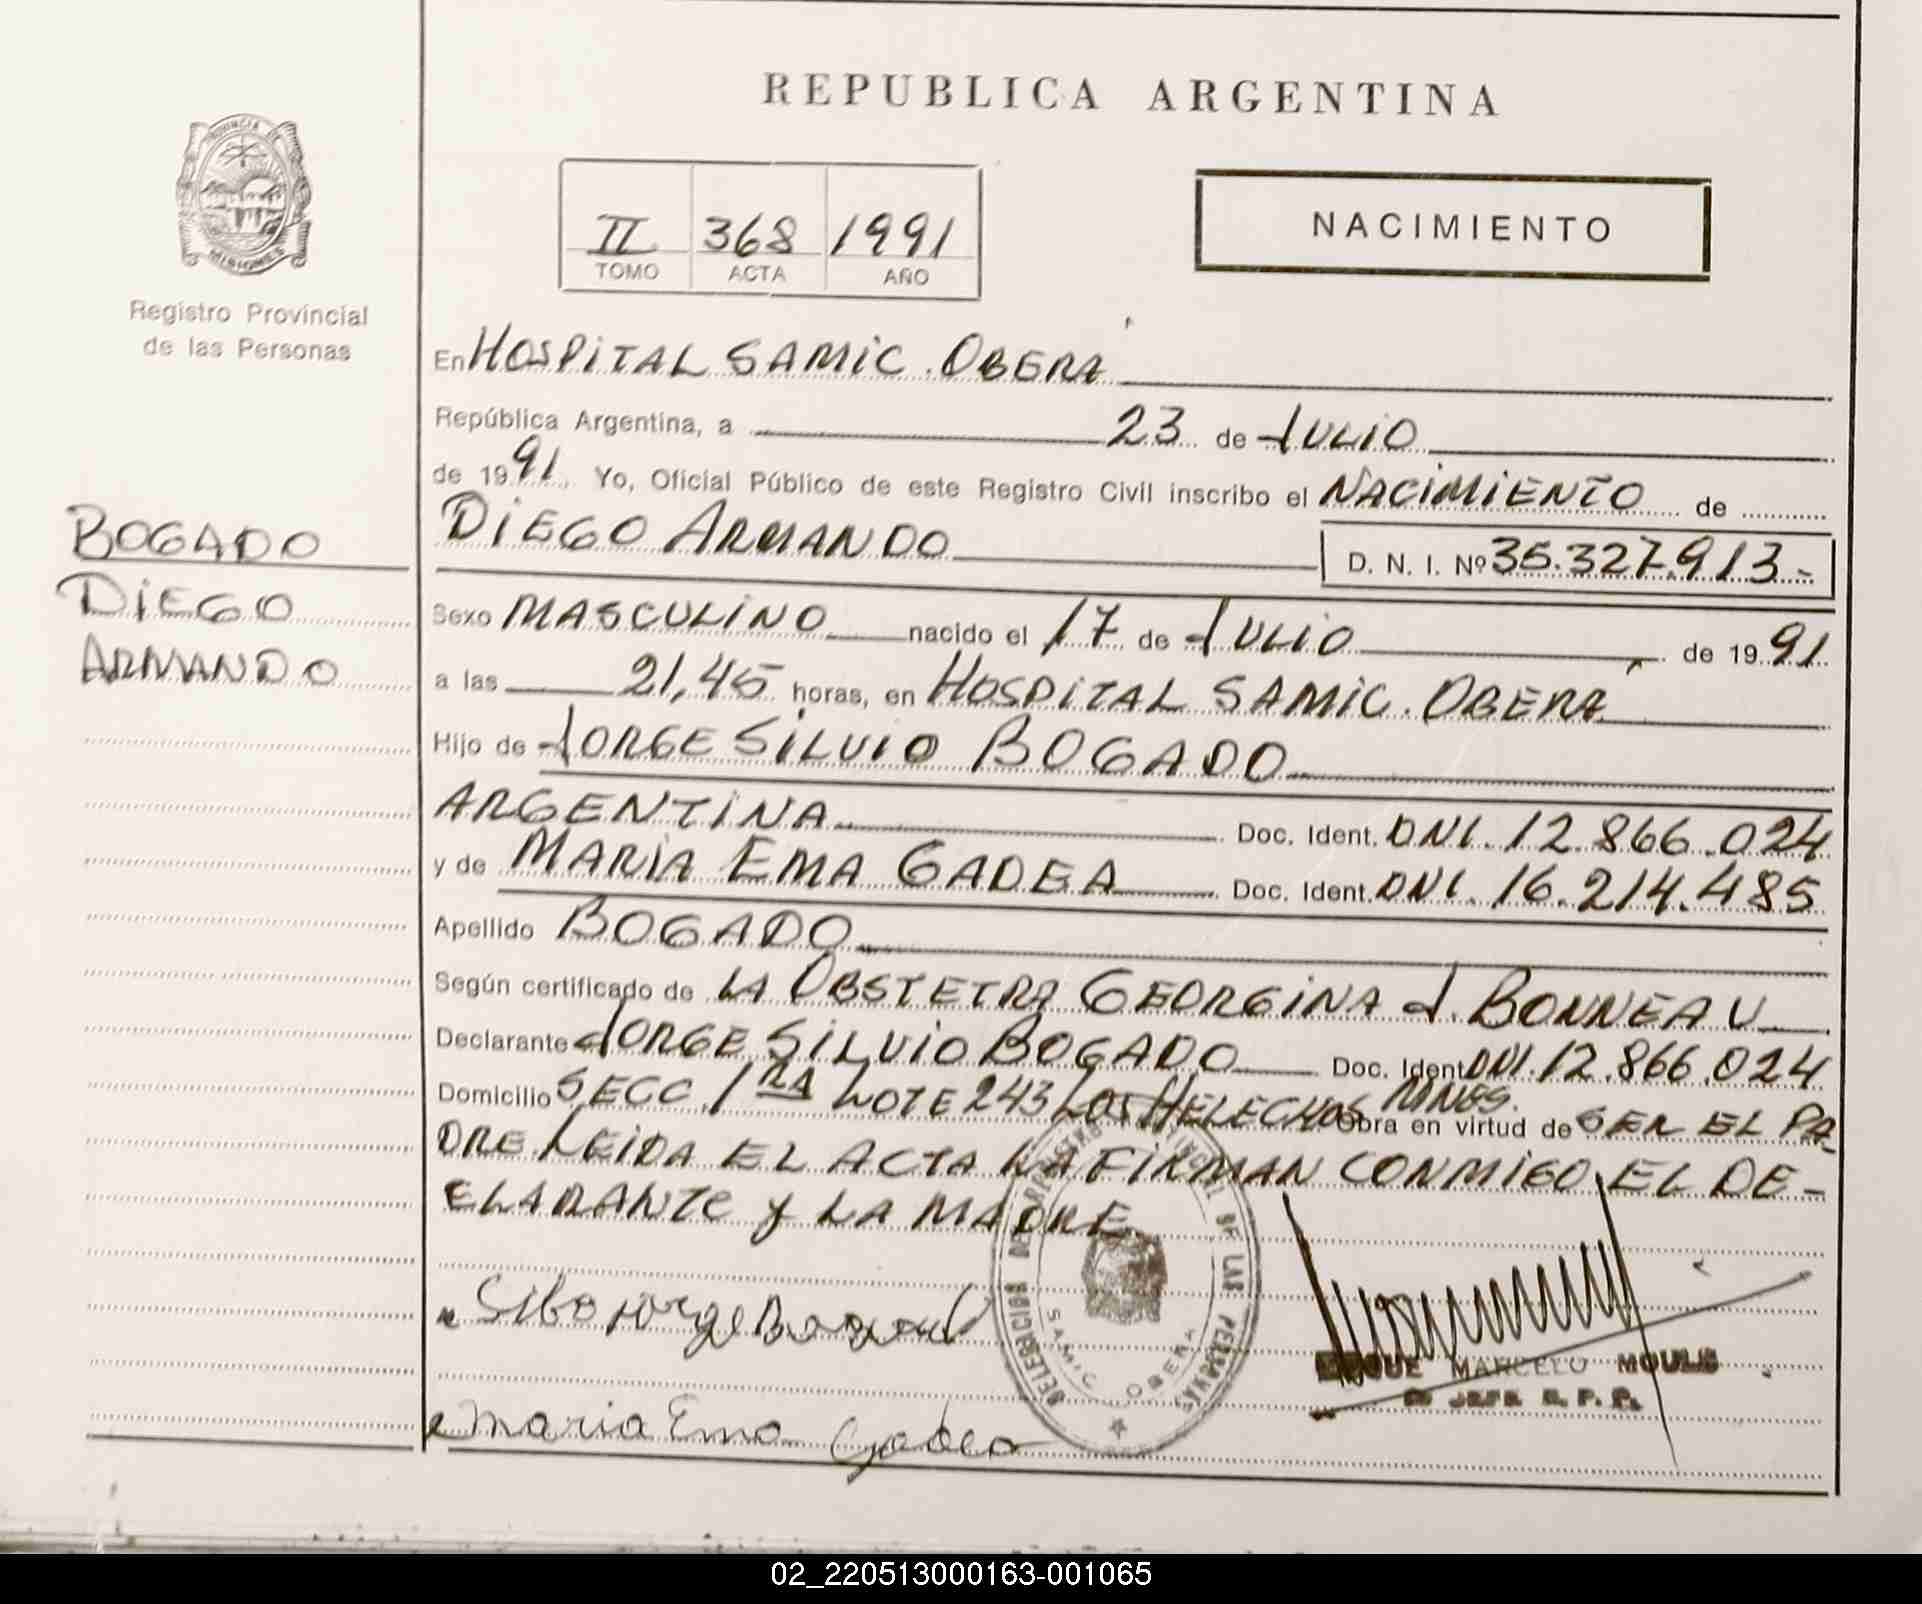 REPUBLICA ARGENTINA
PROVINCIA DE
MISIONES
Registro Provincial
de las Personas
II 368 1991
TOMO ACTA AÑO
NACIMIENTO
En HOSPITAL SAMIC. OBERÁ
República Argentina, a 23 de JULIO
de 1991. Yo, Oficial Público de este Registro Civil inscribo el NACIMIENTO de
BOGADO
DIEGO
ARMANDO
DIEGO ARMANDO D. N. I. Nº 35.327.913.-
Sexo MASCULINO nacido el 17 de JULIO de 1991
a las 21,45 horas, en HOSPITAL SAMIC. OBERÁ
Hijo de JORGE SILVIO BOGADO
ARGENTINA Doc. Ident. DNI. 12.866.024
y de MARIA EMA GADEA Doc. Ident. DNI. 16.214.485
Apellido BOGADO
Según certificado de LA OBSTETRA GEORGINA J. BONNEAU
Declarante JORGE SILVIO BOGADO Doc. Ident DNI. 12.866.024
Domicilio SECC. 1RA LOTE 243 LOS HELECHOS MNES. Obra en virtud de SER EL PA-
DRE LEIDA EL ACTA LA FIRMAN CONMIGO EL DE-
CLARANTE y LA MADRE.
DELEGACION DEL REGISTRO PROVINCIAL DE LAS PERSONAS
SAMIC OBERA
MARCELO MOULE
JEFE R.P.P.
Maria Ema Gadea
02_220513000163-001065